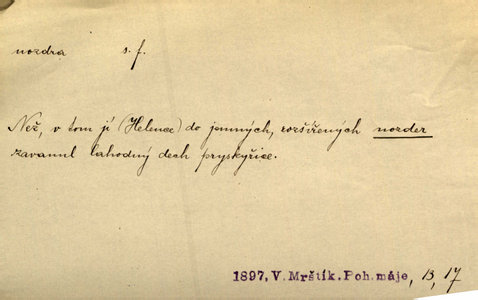 nozdra s. f.
Než, v tom jí (Helence) do jemných, rozšířených nozder
zavanul lahodný dech pryskyřice.
1897, V. Mrštík. Poh. máje, 13, 17